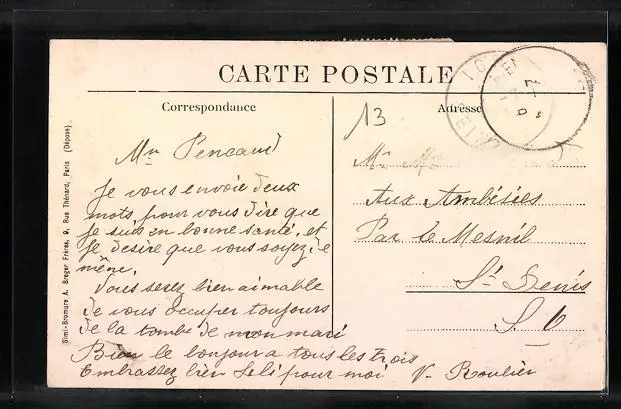 CARTE POSTALE
Correspondance
Adresse
13
Mr Pencaud
Je vous envoie deux
mots pour vous dire que
je suis en bonne santé, et
je desire que vous soyez de
même.
Vous serez bien aimable
de vous occuper toujours
de la tombe de mon mari
Bien le bonjour a tous les trois
Embrassez bien Lili pour moi V. Roulier
Mr
Aux Ambésées
Par le Mesnil
St Denis
S. O
Simi-Bromure A. Breger Frères, 9, Rue Thénard, Paris (Déposé).